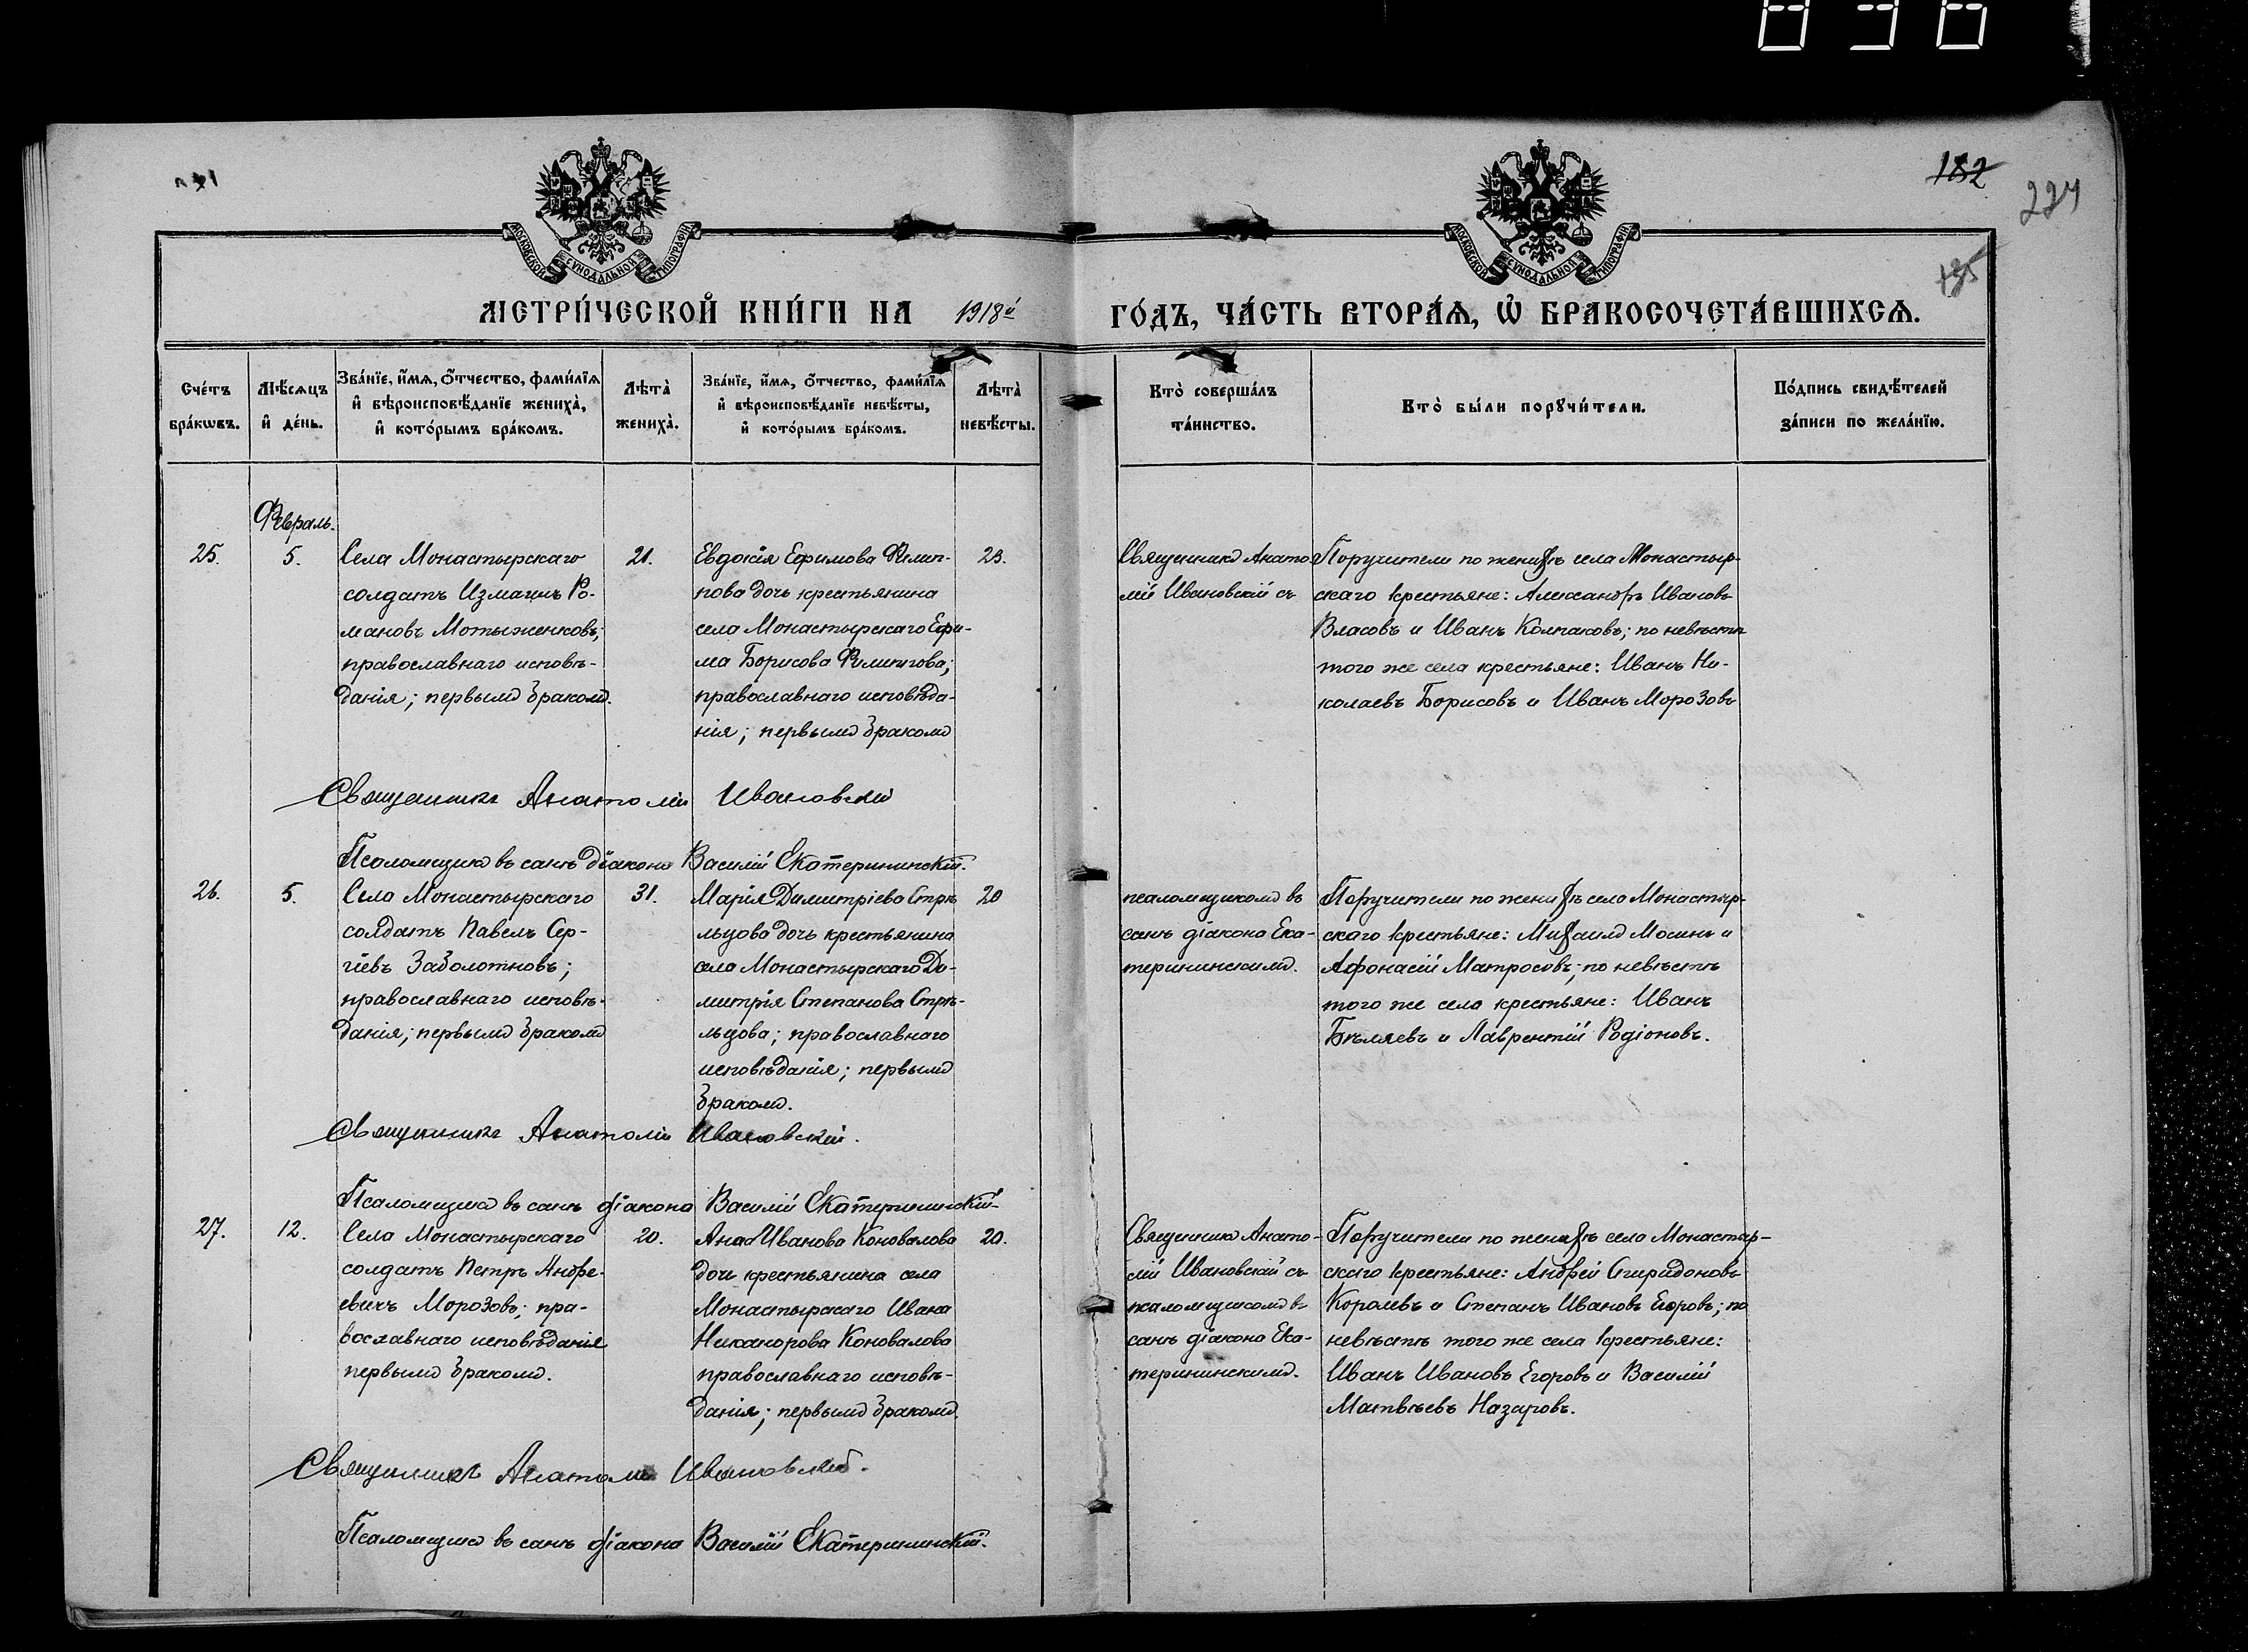 836
182
224
135
МОСКОВСКОЙ СѴНОДАЛЬНОЙ ТИПОГРАФІИ
МОСКОВСКОЙ СѴНОДАЛЬНОЙ ТИПОГРАФІИ
МЕТРИ́ЧЕСКОЙ КНИ́ГИ НА 1918й ГО́ДЪ, ЧА́СТЬ ВТОРА́Ѧ, Ѿ БРАКОСОЧЕТА́ВШИХСѦ.
Сче́тъ бра́кѡвъ.
Мѣ́сѧцъ и҆ де́нь.
Зва́нїе, и҆́мѧ, ѻ҆́тчество, фами́лїѧ и҆ вѣроисповѣ́данїе жениха̀, и҆ кото́рымъ бра́комъ.
Лѣта̀ жениха̀.
Зва́нїе, и҆́мѧ, ѻ҆́тчество, фами́лїѧ и҆ вѣроисповѣ́данїе невѣ́сты, и҆ кото́рымъ бра́комъ.
Лѣта̀ невѣ́сты.
Кто̀ соверша́лъ та́инство.
Кто̀ бы́ли порꙋчи́тели.
По́дпись свидѣ́телей за́писи по жела́нїю.
Февраль.
25.
5.
Села Монастырскаго
солдатъ Измаилъ Ро-
мановъ Мотыженковъ;
православнаго исповѣ-
данія; первымъ бракомъ.
21.
Евдокія Ефимова Филип-
пова дочь крестьянина
села Монастырскаго Ефи-
ма Борисова Филиппова;
православнаго исповѣда-
нія; первымъ бракомъ
23.
Священникъ Анато-
лій Ивановскій съ
Поручители по женихѣ села Монастыр-
скаго крестьяне: Александръ Ивановъ
Власовъ и Иванъ Колпаковъ; по невѣстѣ
того же села крестьяне: Иванъ Ни-
колаевъ Борисовъ и Иванъ Морозовъ
Священникъ Анатолій Ивановскій
Псаломщикъ въ санѣ діакона Василій Екатерининскій.
26.
5.
Села Монастырскаго
солдатъ Павелъ Сер-
гіевъ Заболотновъ;
православнаго исповѣ-
данія; первымъ бракомъ
31.
Марія Димитріева Стрѣ
льцова дочь крестьянина
села Монастырскаго Ди-
митрія Степанова Стрѣ-
льцова; православнаго
исповѣданія; первымъ
бракомъ.
20
псаломщикомъ въ
санѣ діакона Ека-
терининскимъ.
Поручители по женихѣ села Монастыр-
скаго крестьяне: Михаилъ Мосинъ и
Афонасій Матросовъ; по невѣстѣ
того же села крестьяне: Иванъ
Бѣляевъ и Лаврентій Родіоновъ.
Священникъ Анатолій Ивановскій.
Псаломщикъ въ санѣ діакона Василій Екатерининскій.
27.
12.
Села Монастырскаго
солдатъ Петръ Андре-
евичъ Морозовъ; пра-
вославнаго исповѣданія
первымъ бракомъ.
20.
Анна Иванова Коновалова
дочь крестьянина села
Монастырскаго Ивана
Никанорова Коновалова
православнаго исповѣ-
данія; первымъ бракомъ.
20.
Священникъ Анато-
лій Ивановскій съ
псаломщикомъ въ
санѣ діакона Ека-
терининскимъ.
Поручители по женихѣ села Монастыр-
скаго крестьяне: Андрей Спиридоновъ
Королевъ и Степанъ Ивановъ Егоровъ; по
невѣстѣ того же села крестьяне:
Иванъ Ивановъ Егоровъ и Василій
Матвѣевъ Назаровъ.
Священникъ Анатолій Ивановскій.
Псаломщикъ въ санѣ діакона Василій Екатерининскій.